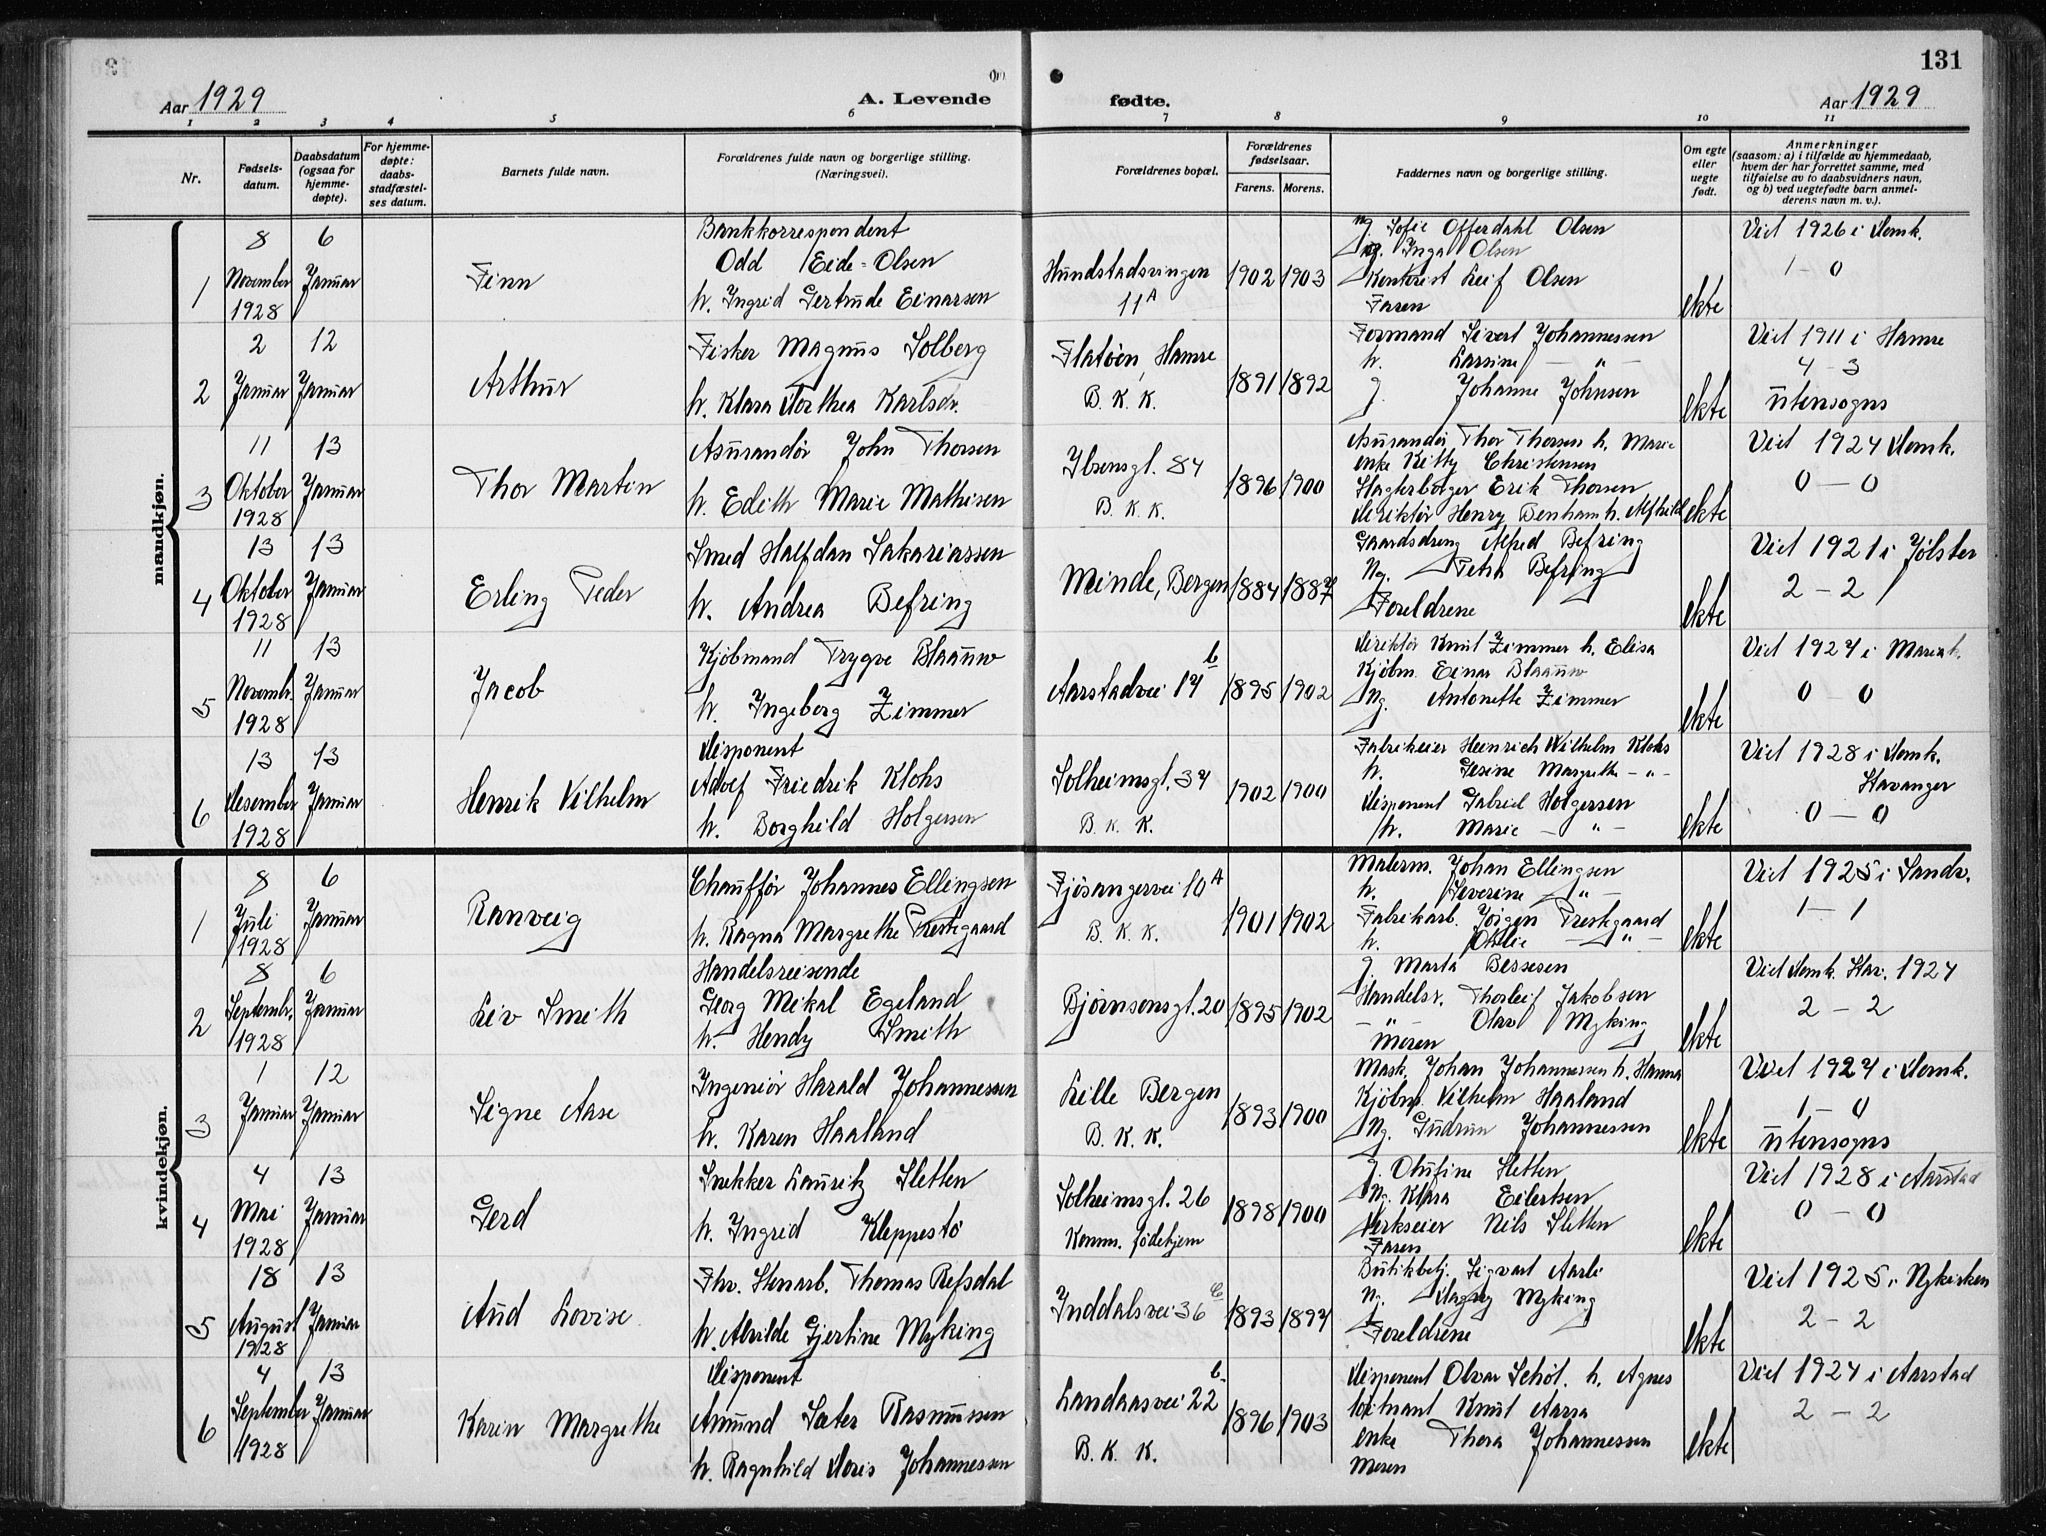 131
Aar 1929
A. Levende
fødte.
Aar 1929
1 2 3 4 5 6 7 8 9 10 11
Nr.
Fødsels-
datum.
Daabsdatum
(ogsaa for
hjemme-
døpte).
For hjemme-
døpte:
daabs-
stadfæstel-
ses datum.
Barnets fulde navn.
Forældrenes fulde navn og borgerlige stilling.
(Næringsvei).
Forældrenes bopæl.
Forældrenes
fødselsaar.
Farens. Morens.
Faddernes navn og borgerlige stilling.
Om egte
eller
uegte
født.
Anmerkninger
(saasom: a) i tilfælde av hjemmedaab,
hvem der har forrettet samme, med
tilføielse av to daabsvidners navn,
og b) ved uegtefødte barn anmel-
derens navn m. v.).
mandkjøn.
1
8
November
1928
6
Januar
Finn
Bankkorrespondent
Odd Eide-Olsen
h. Ingrid Gertrude Einarsen
Hundstadsvingen
11A
1902 1903
ug. Sofie Offerdahl Olsen
ug. Inga Olsen
Kontorist Leif Olsen
Faren
ekte
Viet 1926 i Domk.
1 - 0
2
2
Januar
12
Januar
Arthur
Fisker Magnus Solberg
h. Klara Dorthea Karlsdr.
Flatöen, Hamre
B. K. K.
1891 1892
Formand Sivert Johannessen
h. Larsine — " —
g. Johanne Johnsen
ekte
Viet 1911 i Hamre
4 - 3
utensogns
3
11
Oktober
1928
13
Januar
Thor Martin
Assurandör John Thorsen
h. Edith Marie Mathisen
Ibsensgt. 84
B. K. K.
1896 1900
Assurandör Thor Thorsen h. Marie
enke Kitty Christensen
Erik Thorsen
Direktör Henry Benham h. Alfhild
ekte
Viet 1924 Domk.
0 — 0
4
13
Oktober
1928
13
Januar
Erling Peder
Smed Halfdan Sakariassen
h. Andrea Befring
Minde, Bergen
1884 1887
Gaardsdreng Alfred Befring
Ug. Petra Befring
Foreldrene
ekte
Viet 1921 i Jölster
2 - 2
5
11
Novembr.
1928
13
Januar
Jacob
Kjöbmand Trygve Blaauw
h. Ingeborg Zimmer
Aarstadvei 14 b
1895 1902
Direktör Knut Zimmer h. Elisa
Kjöbm. Einar Blaauw
Ug. Antonette Zimmer
ekte
Viet 1924 i Mariak.
0 - 0
6
13
Desember
1928
13
Januar
Henrik Vilhelm
Disponent
Adolf Friedrik Klohs
h. Borghild Holgersen
Solheimsgt. 34
B. K. K.
1902 1900
Fabrikeier Heinrich Wilhelm Klohs
h. Gesine Margrethe — " —
Disponent Gabriel Holgersen
h. Marie — " —
ekte
Viet 1928 i Domk.
Stavanger
0 — 0
kvindekjøn.
1
8
Juli
1928
6
Januar
Ranveig
Chaufför Johannes Ellingsen
h. Ragna Margrethe Prestegaard
Fjösangervei 10 A
B. K. K.
1901 1902
Malerm. Johan Ellingsen
h. Severine — " —
Fabrikarb. Jörgen Prestgaard
h. — " —
ekte
Viet 1925 i Sandv.
1 - 1
2
8
Septembr.
1928
6
Januar
Liv Smith
Handelsreisende
Georg Mikal Egeland
h. Hendy Smith
Bjørnsonsgt. 20
1895 1902
g. Marta Bessesen
Handelsr. Thorleif Jakobsen
— " — Olav Myking
Moren
ekte
Viet Domk. Stav. 1924
2 - 2
3
1
Januar
12
Januar
Signe Aase
Ingeniör Harald Johannessen
h. Karen Haaland
Lille Bergen
B. K. K.
1893 1900
Mask. Johan Johannessen h. Hanna
Kjöbm. Vilhelm Haaland
Ug. Gudrun Johannessen
ekte
Viet 1924 i Domk.
1 - 0
utensogns
4
4
Mai
1928
13
Januar
Gerd
Snekker Lauritz Sletten
h. Ingrid Kleppestö
Solheimsgt. 26
Komm. födehjem
1898 1900
g. Olufine Sletten
Ug. Klara Eilertsen
Verkseier Nils Sletten
Faren
ekte
Viet 1928 i Aarstad
0 - 0
5
18
August
1928
13
Januar
Aud Lovise
Fhv. Stenarb. Thomas Refsdal
h. Alvilde Gjertine Myking
Inddalsvei 36 C
1893 1894
Butikbetj. Sigvart Aarli
Ug. Dagny Myking
Foreldrene
ekte
Viet 1925 i Nykirken
2 - 2
6
4
September
1928
13
Januar
Karin Margrethe
Disponent
Amund Sæter Rasmussen
h. Ragnhild Doris Johannessen
Landaasvei 22 b.
B. K. K.
1896 1903
Disponent Olvar Schöt. h. Agnes
löitnant Knut Aarra
enke Thora Johannessen
Moren
ekte
Viet 1924 i Aarstad
2 - 2